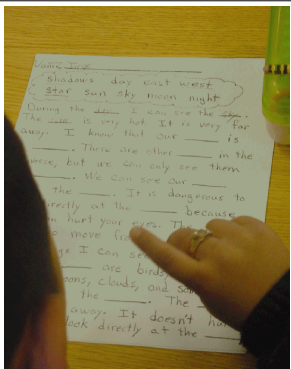 shadows day east west
star sun sky moon night
During the day I can see the
The ___ is very hot. It is very far
away. I know that our ___ is
___. There are other ___ in the
but we can only see them
___. We can see our ___
the ___. It is dangerous to
directly at the ___ because
can hurt your eyes. The
move
I can see
___ are birds,
clouds, and
the ___. The ___
away. It doesn't
look directly at the ___